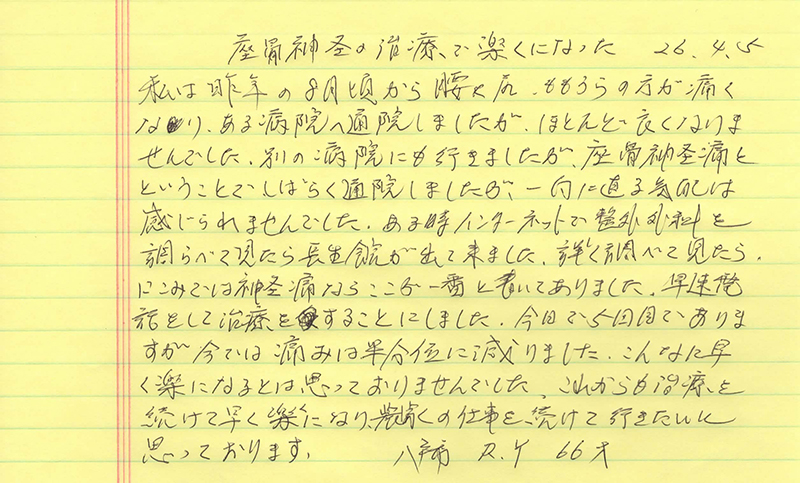 座骨神圣の治療で楽くになった 26.4.5
私は昨年の8月頃から腰や尻、ももうらの方が痛く
なり、ある病院へ通院しましたが、ほとんど良くなりま
せんでした。別の病院にも行きましたが、座骨神圣痛と
ということでしばらく通院しましたが、一向に直る気配は
感じられませんでした。ある時インターネットで整形外科を
調らべて見たら長生館が出て来ました。詳く調べて見たら、
口こみでは神圣痛ならここが一番と書いてありました。早速電
話をして治療をすることにしました。今日で5回目であります
すが今では痛みは半分位に減りました。こんなに早
く楽になるとは思っておりませんでした。これからも治療を
続けて早く楽になり、の仕事を、続けて行きたいと
思っております。 R.Y 66才